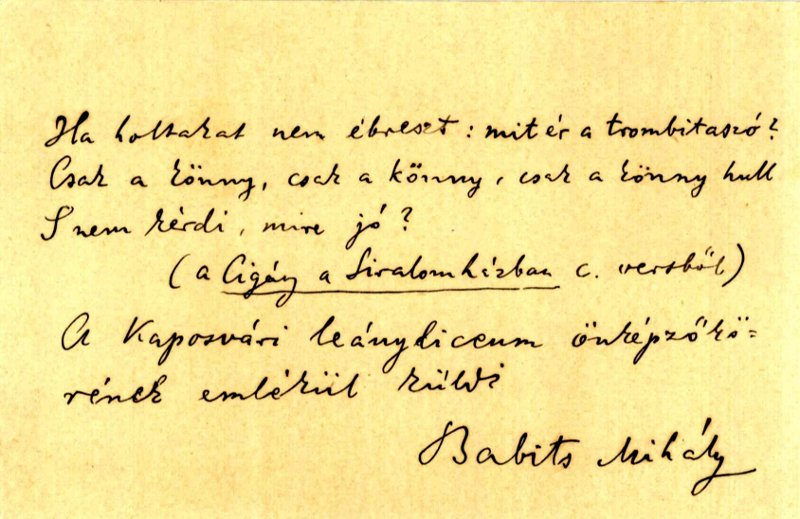 Ha holtakat nem ébreszt: mit ér a trombitaszó?
Csak a könny, csak a könny, csak a könny hull
S nem kérdi, mire jó?
(a Cigány a Siralomházban c. versből)
A Kaposvári leánylíceum önképzőkö-
rének emlékül küldi
Babits Mihály